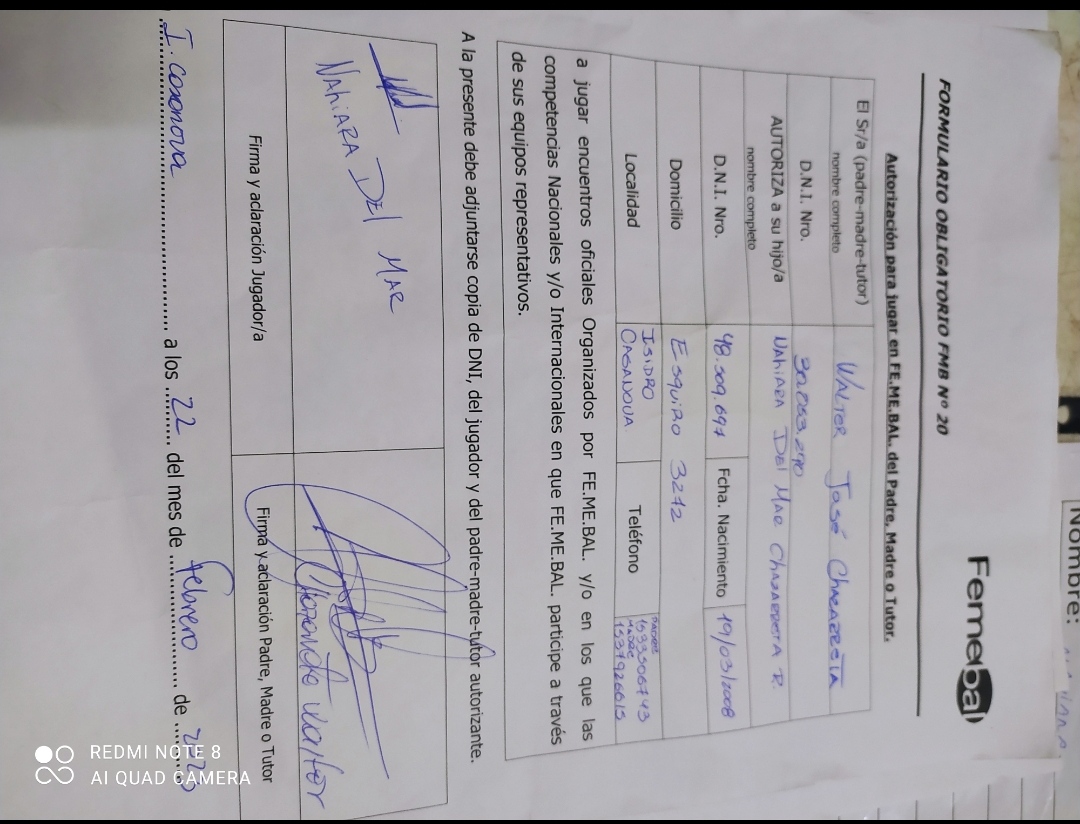 Nombre:
Femebal
FORMULARIO OBLIGATORIO FMB Nº 20
Autorización para jugar en FE.ME.BAL. del Padre, Madre o Tutor.
El Sr/a (padre-madre-tutor) nombre completo WALTER JOSÉ CHAZARRETA
D.N.I. Nro. 30.053.290
AUTORIZA a su hijo/a nombre completo NAHIARA DEL MAR CHAZARRETA R.
D.N.I. Nro. 48.509.697 Fcha. Nacimiento 19/03/2008
Domicilio ESQUIRO 3272
Localidad ISIDRO CASANOVA Teléfono PADRE 1533506743 MADRE 1537926615
a jugar encuentros oficiales Organizados por FE.ME.BAL. y/o en los que las
competencias Nacionales y/o Internacionales en que FE.ME.BAL. participe a través
de sus equipos representativos.
A la presente debe adjuntarse copia de DNI, del jugador y del padre-madre-tutor autorizante.
NAHIARA DEL MAR
Walter
Firma y aclaración Jugador/a Firma y aclaración Padre, Madre o Tutor
I. Casanova a los 22 del mes de febrero de 2023
REDMI NOTE 8
AI QUAD CAMERA